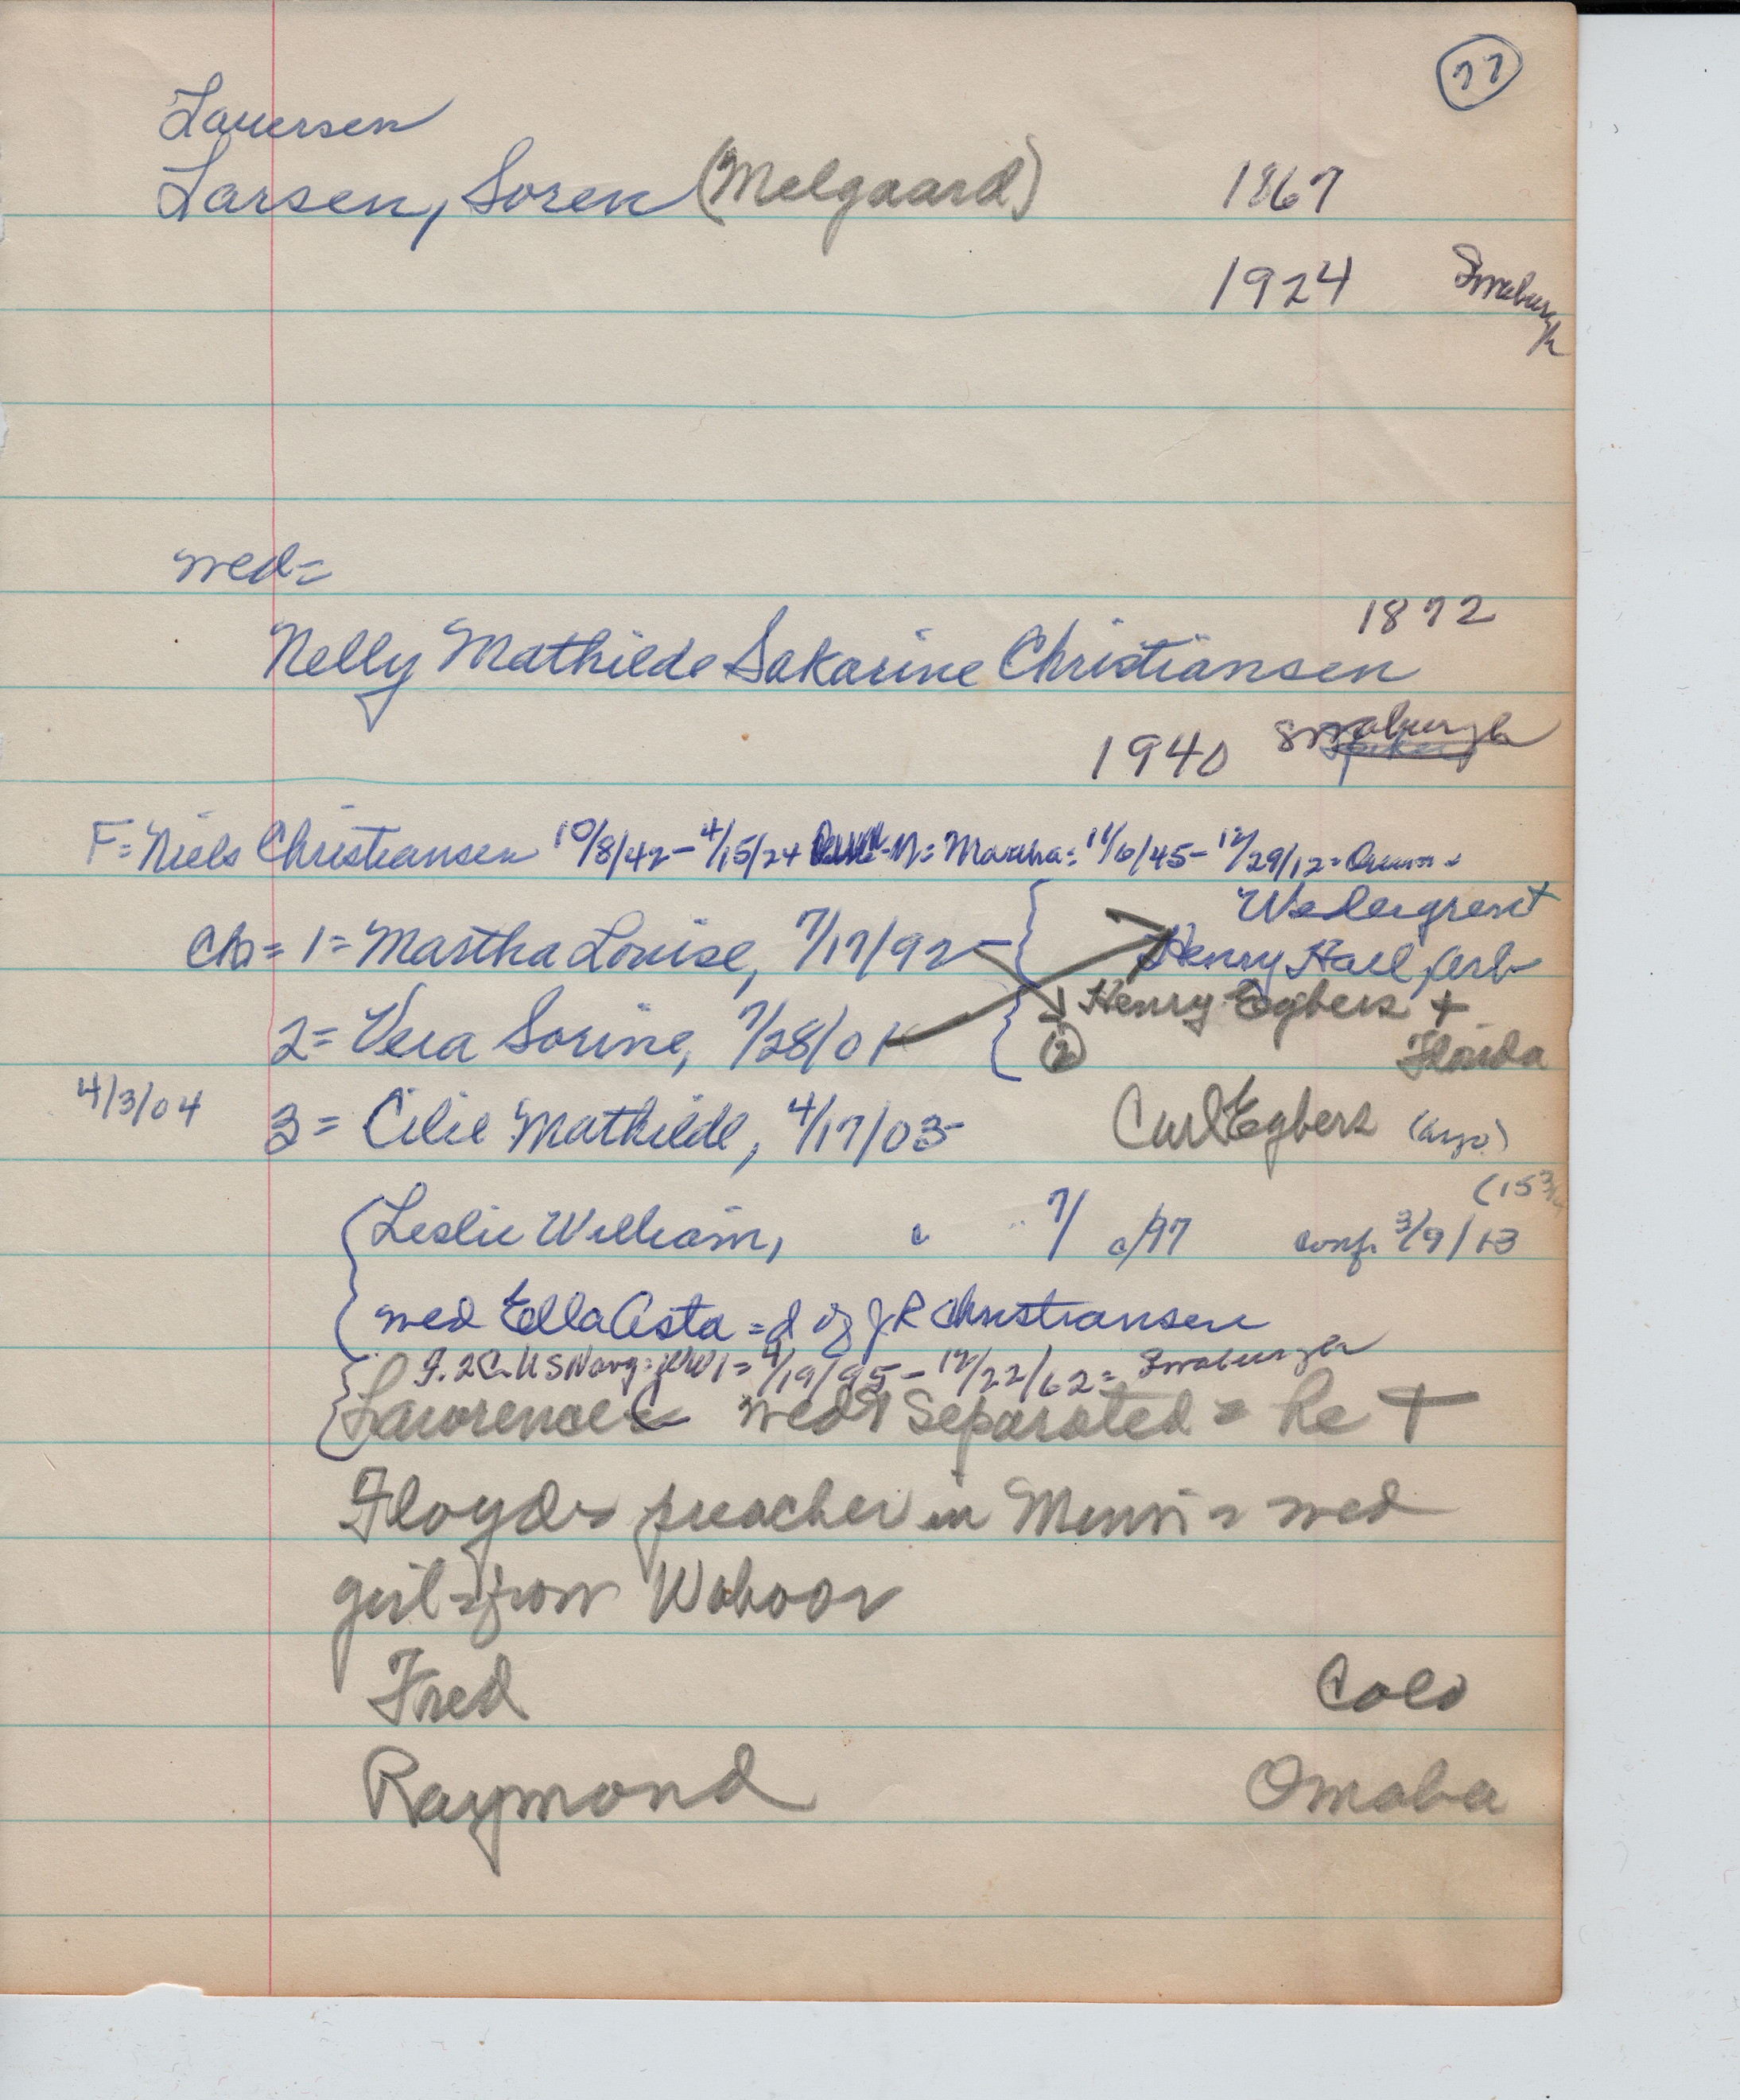 77
Lauersen
Larsen, Soren (Melgaard) 1867
1924 Swaburgh
wed=
1872
Nelly Mathilde Sakarine Christiansen
1940 Swaburgh
F= Niels Christiansen 10/8/42 - 4/15/24 M= Maxina= 11/6/45 - 12/29/12=
Ch= 1= Martha Louise, 7/17/92
Henry Hall, Arb
2= Vera Sorine, 7/28/01
(2) Henry Egbers +
Florida
4/3/04 3= Cilie Mathilde, 4/17/03
Carl Egbers
(15 3/4
Leslie William, " " 7/ /97 conf. 3/9/13
wed Ella Asta = d of J R Christiansen
F. 2C. U S Navy= WW1= 4/19/95 - 12/22/62= Swaburgh
Lawrence C wed & Separated = he +
Floyd= preacher in Minn = wed
girl from Wahoo
Fred Colo
Raymond Omaha